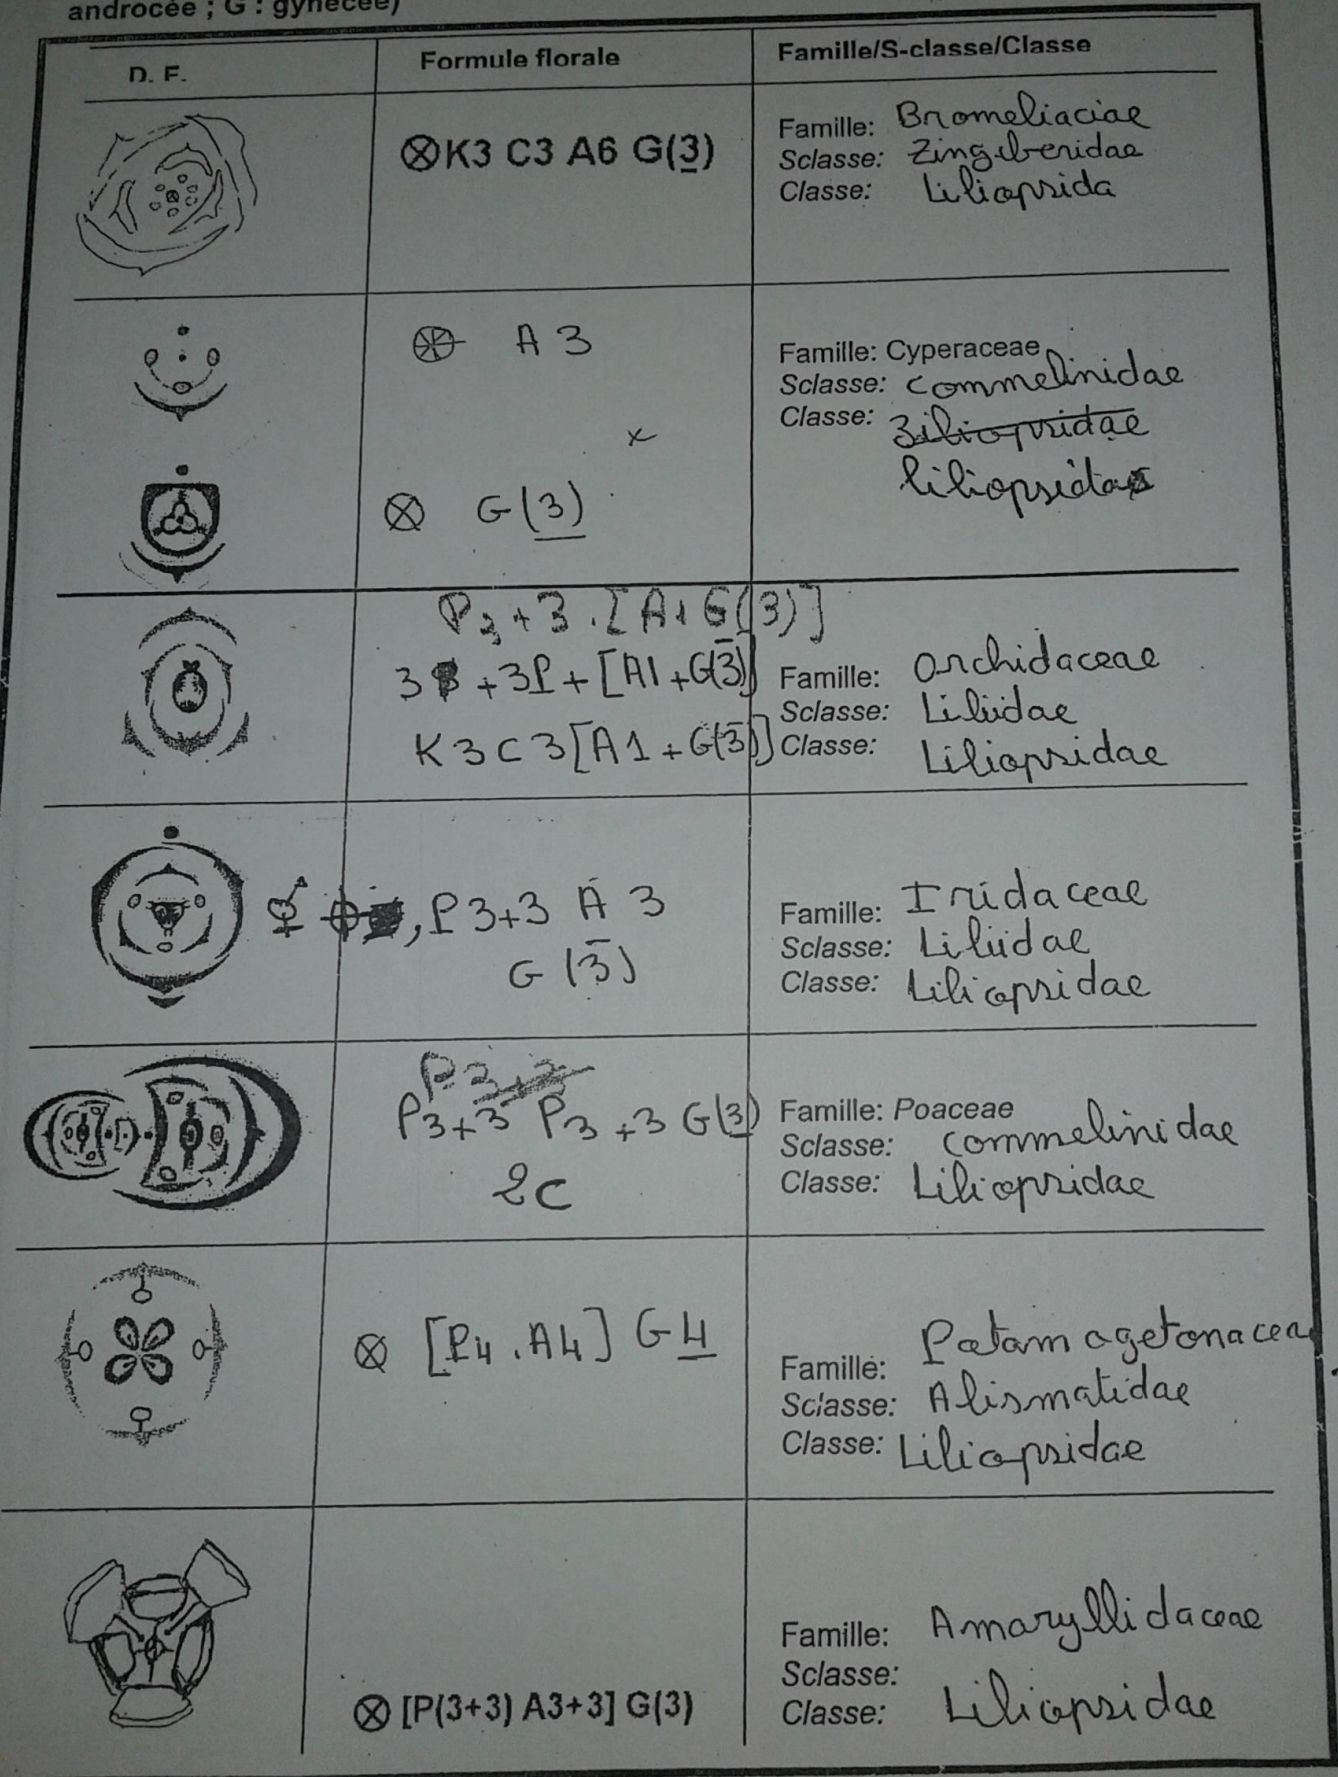 androcée ; G : gynécée)
D. F.
Formule florale
Famille/S-classe/Classe
⊗K3 C3 A6 G(3)
Famille: Bromeliaciae
Sclasse: Zingiberidae
Classe: Liliopsida
A 3
G(3)
Famille: Cyperaceae
Sclasse: Commelinidae
Classe:
liliopsida
P3+3.[A1 G(3)]
+3P+[A1+G(3)]
K3C3[A1+G(3)]
Famille: Orchidaceae
Sclasse: Liliidae
Classe: Liliopsidae
⚥ , P3+3 A 3
G (3)
Famille: Iridaceae
Sclasse: Liliidae
Classe: Liliopsidae
P3+3 P3+3 G(3)
2C
Famille: Poaceae
Sclasse: Commelinidae
Classe: Liliopsidae
⊗ [P4.A4] G4
Famille: Potamagetonacea
Sclasse: Alismatidae
Classe: Liliopsidae
⊗ [P(3+3) A3+3] G(3)
Famille: Amaryllidaceae
Sclasse:
Classe: Liliopsidae